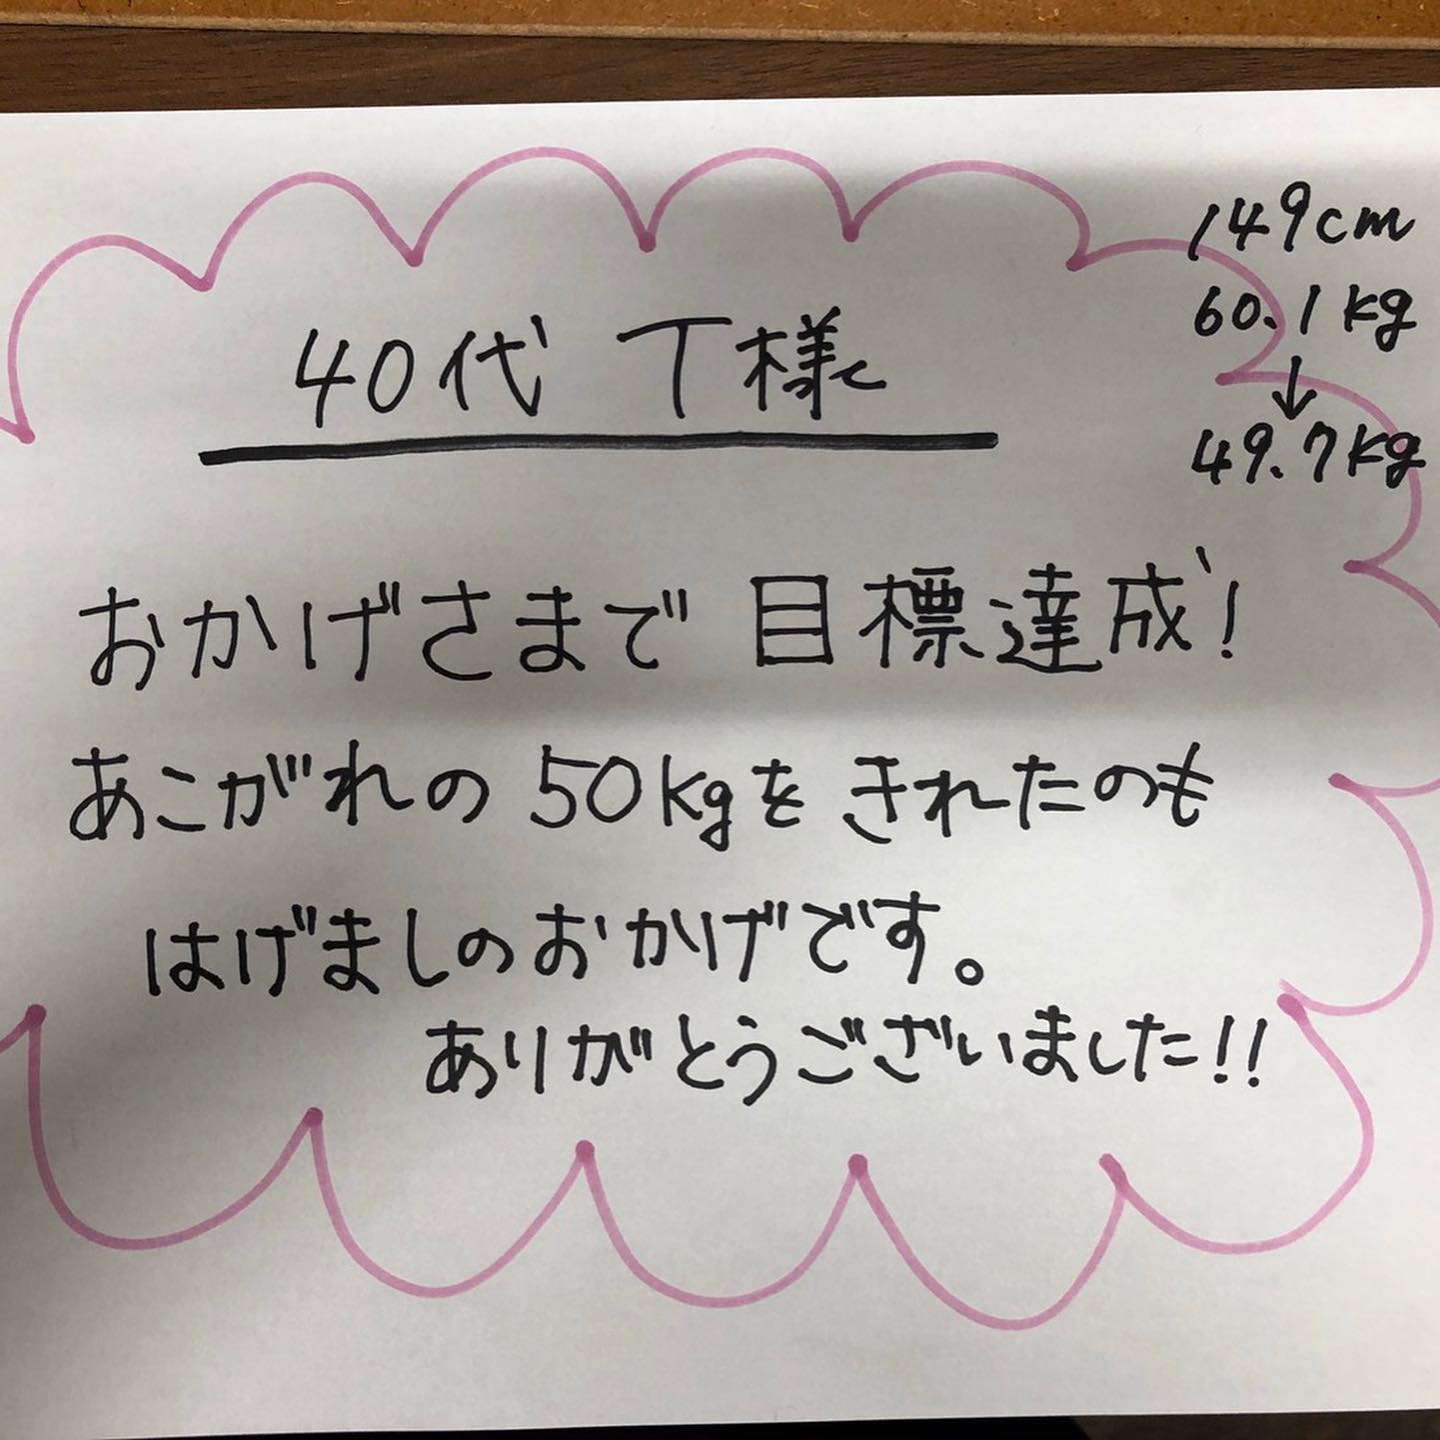 149cm
60.1kg
↓
49.7kg
40代 T様
おかげさまで目標達成!
あこがれの50kgをきれたのも
はげましのおかげです。
ありがとうございました!!